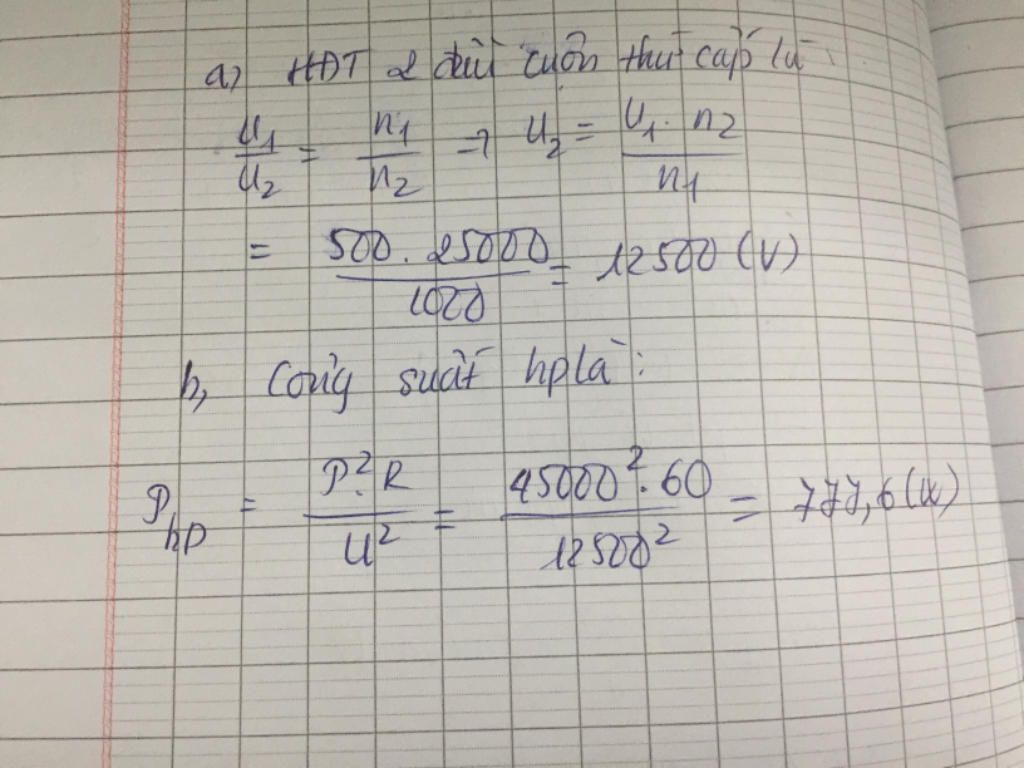 a) HĐT 2 đầu cuộn thứ cấp là:
U1/U2 = n1/n2 → U2 = U1 . n2/n1
= 500 . 25000/1000 = 12500 (V)
b, Công suất hp là:
Php = P². R/U² = 45000² . 60/12500² = 777,6 (W)